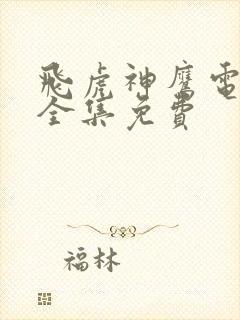 飛虎神鷹電
全集免費
福林